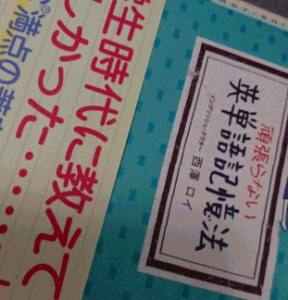 頑張らない
英単語記憶法
イングリッシュ・ドクター 西澤 ロイ
学生時代に教えて
しかった……
満点の